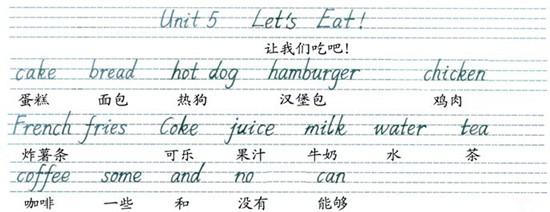 Unit 5 Let's Eat!
让我们吃吧!
cake bread hot dog hamburger chicken
蛋糕 面包 热狗 汉堡包 鸡肉
French fries Coke juice milk water tea
炸薯条 可乐 果汁 牛奶 水 茶
coffee some and no can
咖啡 一些 和 没有 能够